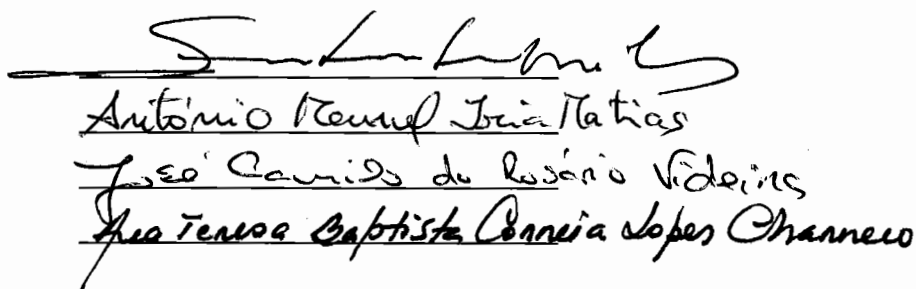 António Manuel Iria Matias
José Camilo do Rosário Videira
Ana Teresa Baptista Correia Lopes Charneco